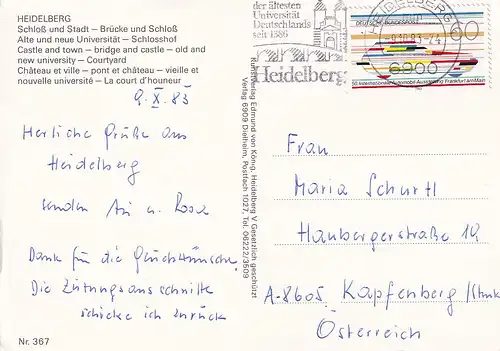 HEIDELBERG
Schloß und Stadt – Brücke und Schloß
Alte und neue Universität – Schlosshof
Castle and town – bridge and castle – old and
new university – Courtyard
Château et ville – pont et château – vieille et
nouvelle université – La court d'houneur
9. X. 83
Herzliche Grüße aus
Heidelberg
senden u. Rosa
Dank für die Glückwünsche.
Die Zeitungsausschnitte
schicke ich zurück
Nr. 367
Kunstverlag Edmund von König, Heidelberg V Gesetzlich geschützt
Verlag 6909 Dielheim, Postfach 1027, Tel. 06222/3509
der ältesten
Universität
Deutschlands
seit 1386
Heidelberg
HEIDELBERG
6900
DEUTSCHE BUNDESPOST
60
50. Internationale Automobil-Ausstellung Frankfurt am Main
Frau
Maria Schurtl
Haubergerstraße
A-8605 Kapfenberg
Österreich